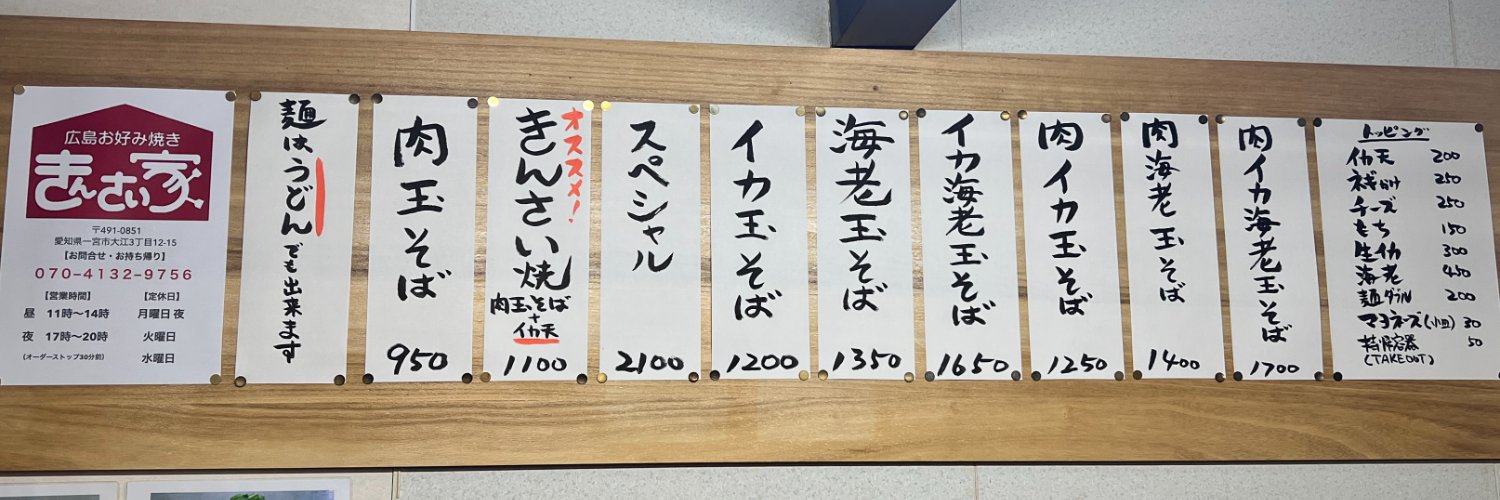 広島お好み焼き
きんさい家
〒491-0851
愛知県一宮市大江3丁目12-15
【お問合せ・お持ち帰り】
070-4132-9756
【営業時間】
昼 11時〜14時
夜 17時〜20時
(オーダーストップ30分前)
【定休日】
月曜日 夜
火曜日
水曜日
麺はうどんでも出来ます
肉玉そば
950
オススメ!
きんさい焼
肉玉そば
+
イカ天
1100
スペシャル
2100
イカ玉そば
1200
海老玉そば
1350
イカ海老玉そば
1650
肉イカ玉そば
1250
肉海老玉そば
1400
肉イカ海老玉そば
1700
トッピング
イカ天 200
ネギかけ 250
チーズ 250
もち 150
生イカ 300
海老 450
麺ダブル 200
マヨネーズ(小皿) 30
持帰容器 50
(TAKEOUT)